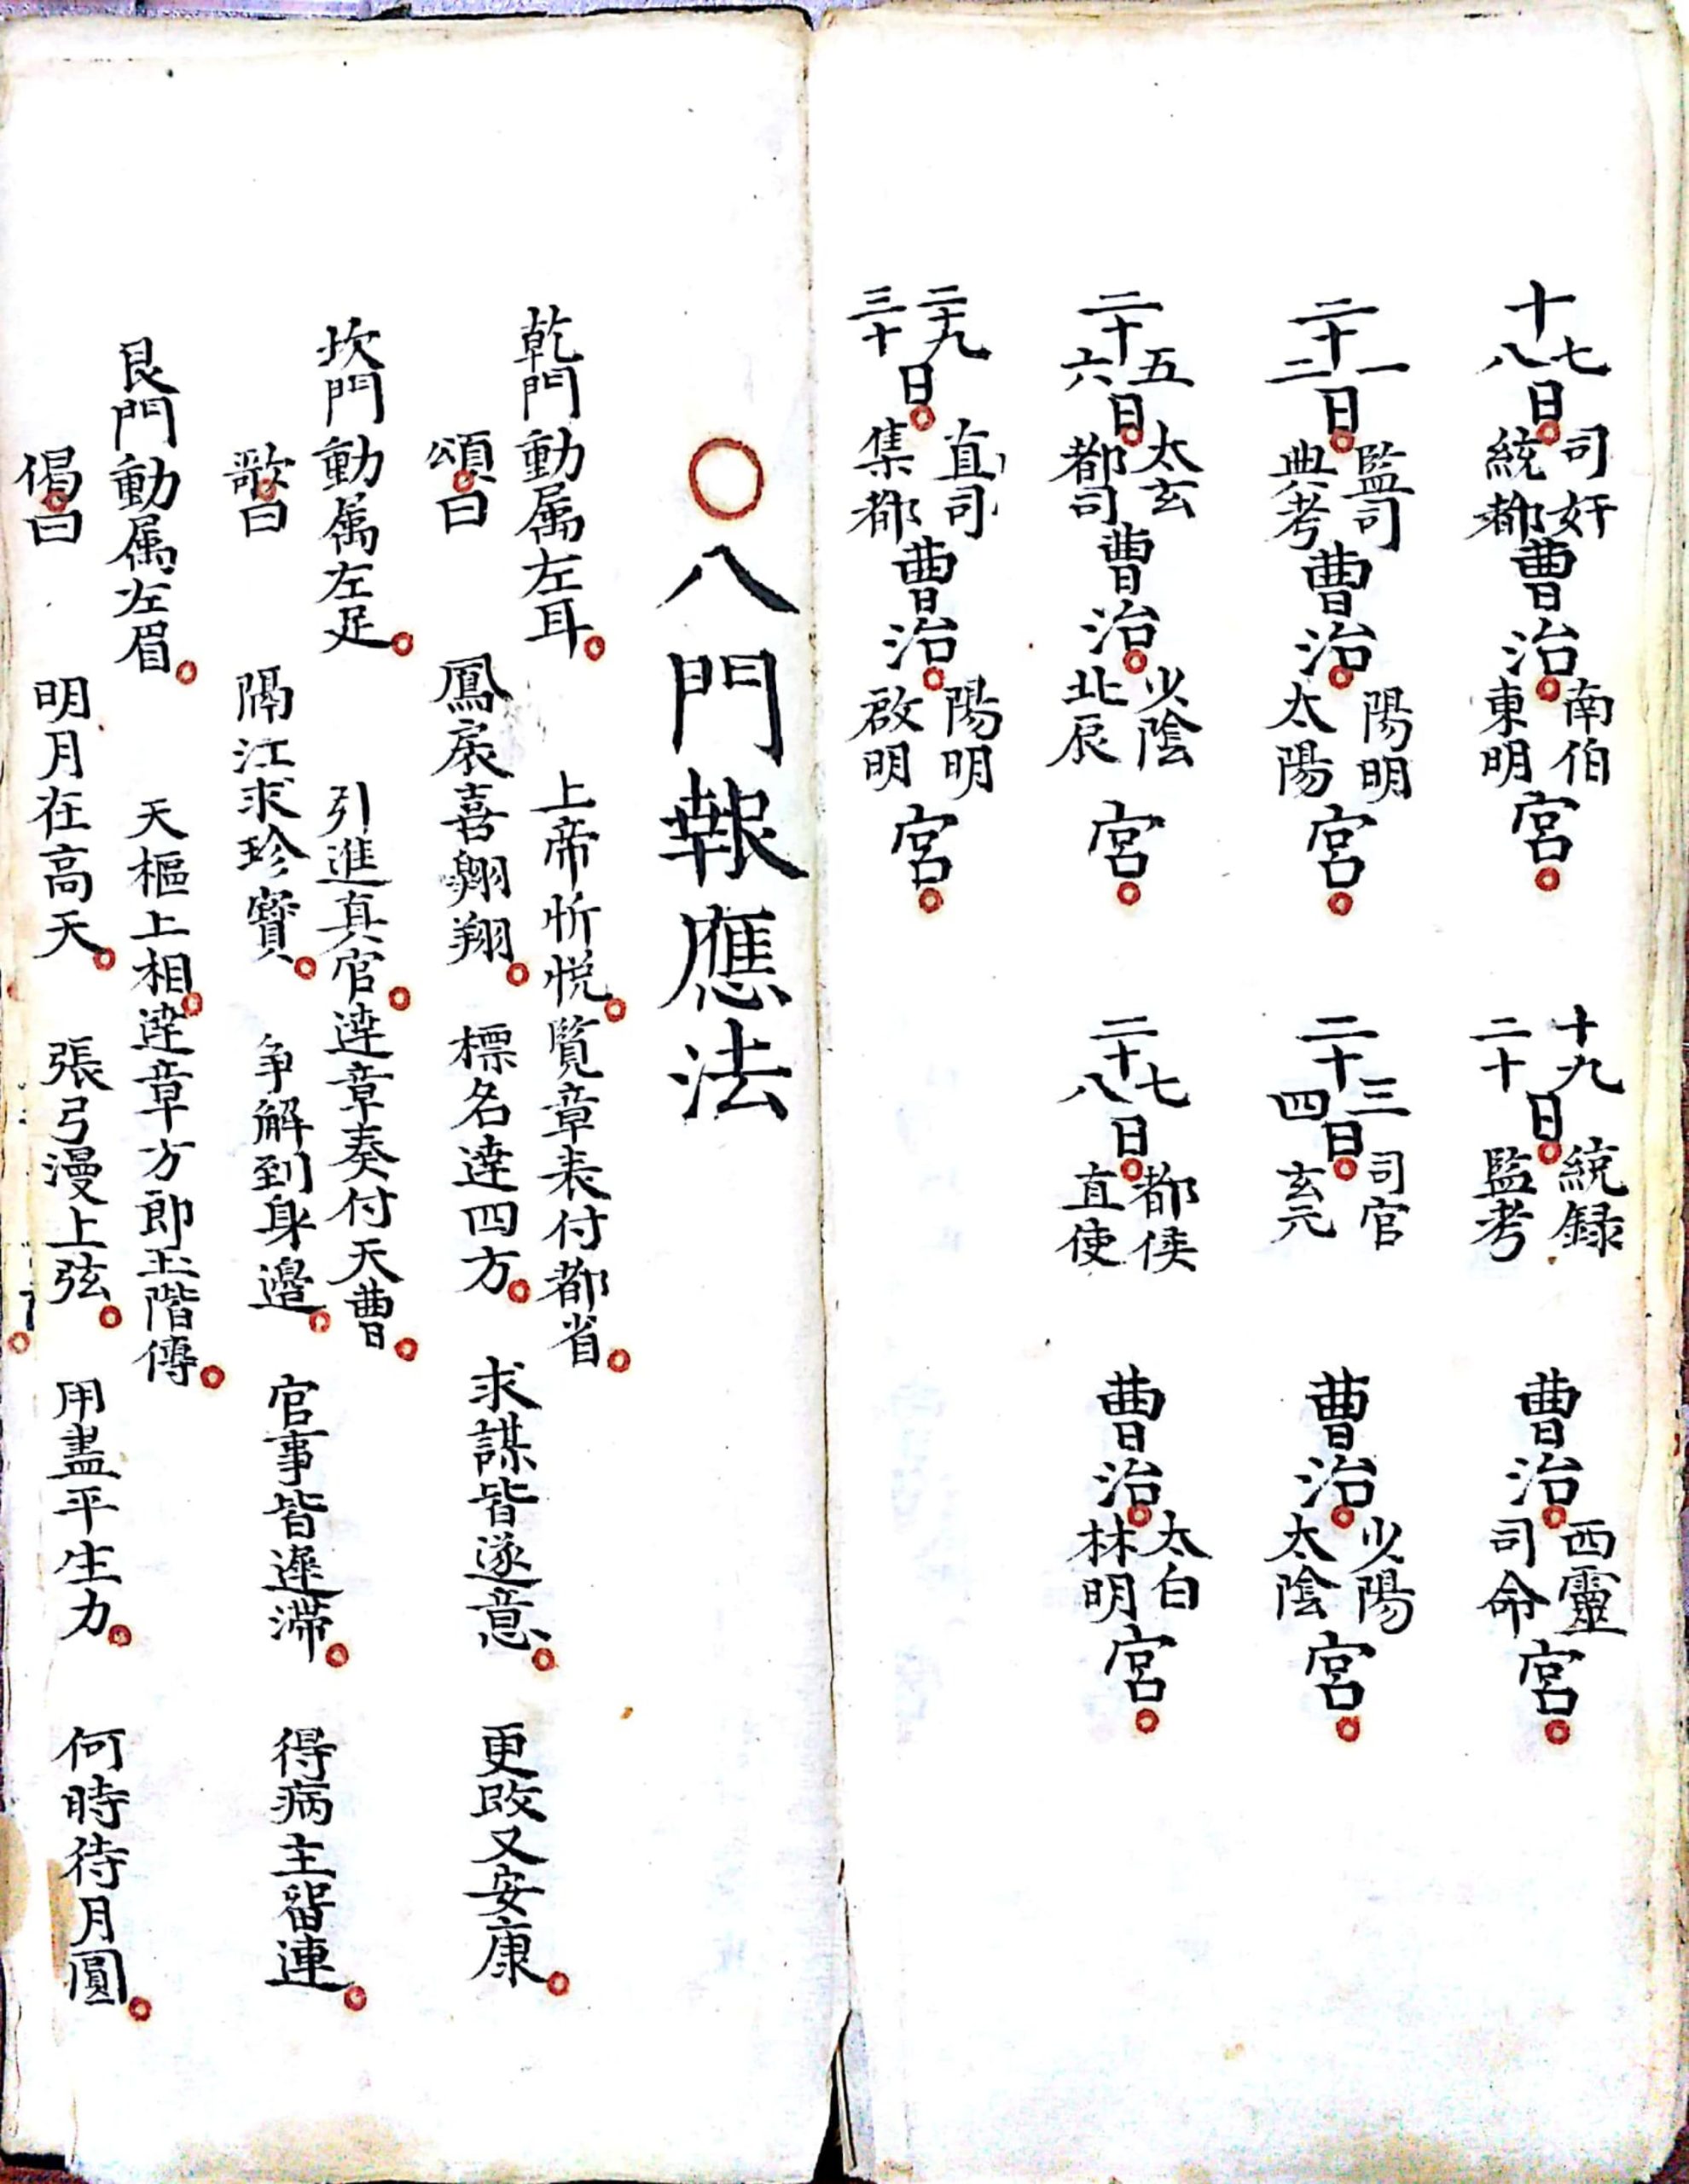 十七八日司奸統都曹治南伯東明宮
十九二十日統録監考曹治西靈司命宮
二十一二日監司典考曹治陽明太陽宮
二十三四日司官玄元曹治少陽太陰宮
二十五六日太玄都司曹治少陰北辰宮
二十七八日都侯直使曹治太白林明宮
二十九三十日直司集都曹治陽明啟明宮
〇八門報應法
乾門動属左耳 上帝忻悅覽章表付都省
頌曰 鳳扆喜翺翔 標名達四方 求謀皆遂意 更改又安康
坎門動属左足 引進真官達章奏付天曹
歌曰 隔江求珍寶 争解到身邊 官事皆遲滯 得病主留連
艮門動属左眉 天樞上相達章方郎玉階傳
偈曰 明月在高天 張弓漫上弦 用盡平生力 何時待月圓